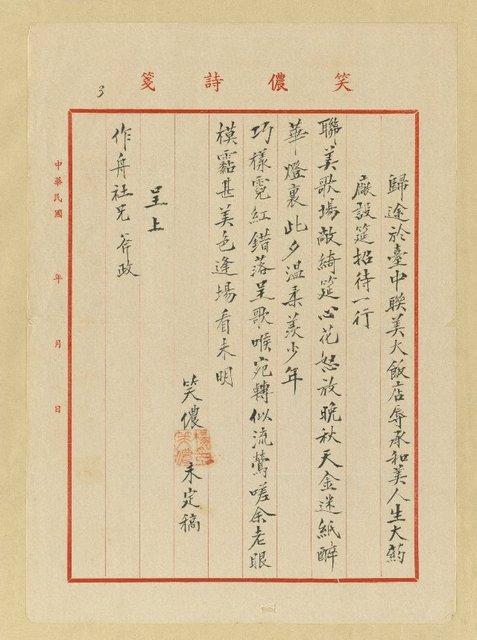 笑儂詩箋
3
歸途於臺中联美大飯店辱承和美人生大葯
廠設筵招待一行
聯美歌場敞綺筵心花怒放晚秋天金迷紙醉
華燈裏此夕溫柔羨少年
巧樣霓紅錯落呈歌喉宛轉似流鶯嗟余老眼
模霑甚美色逢場看未明
笑儂 未定稿
呈上
作舟社兄斧政
中華民國 年 月 日